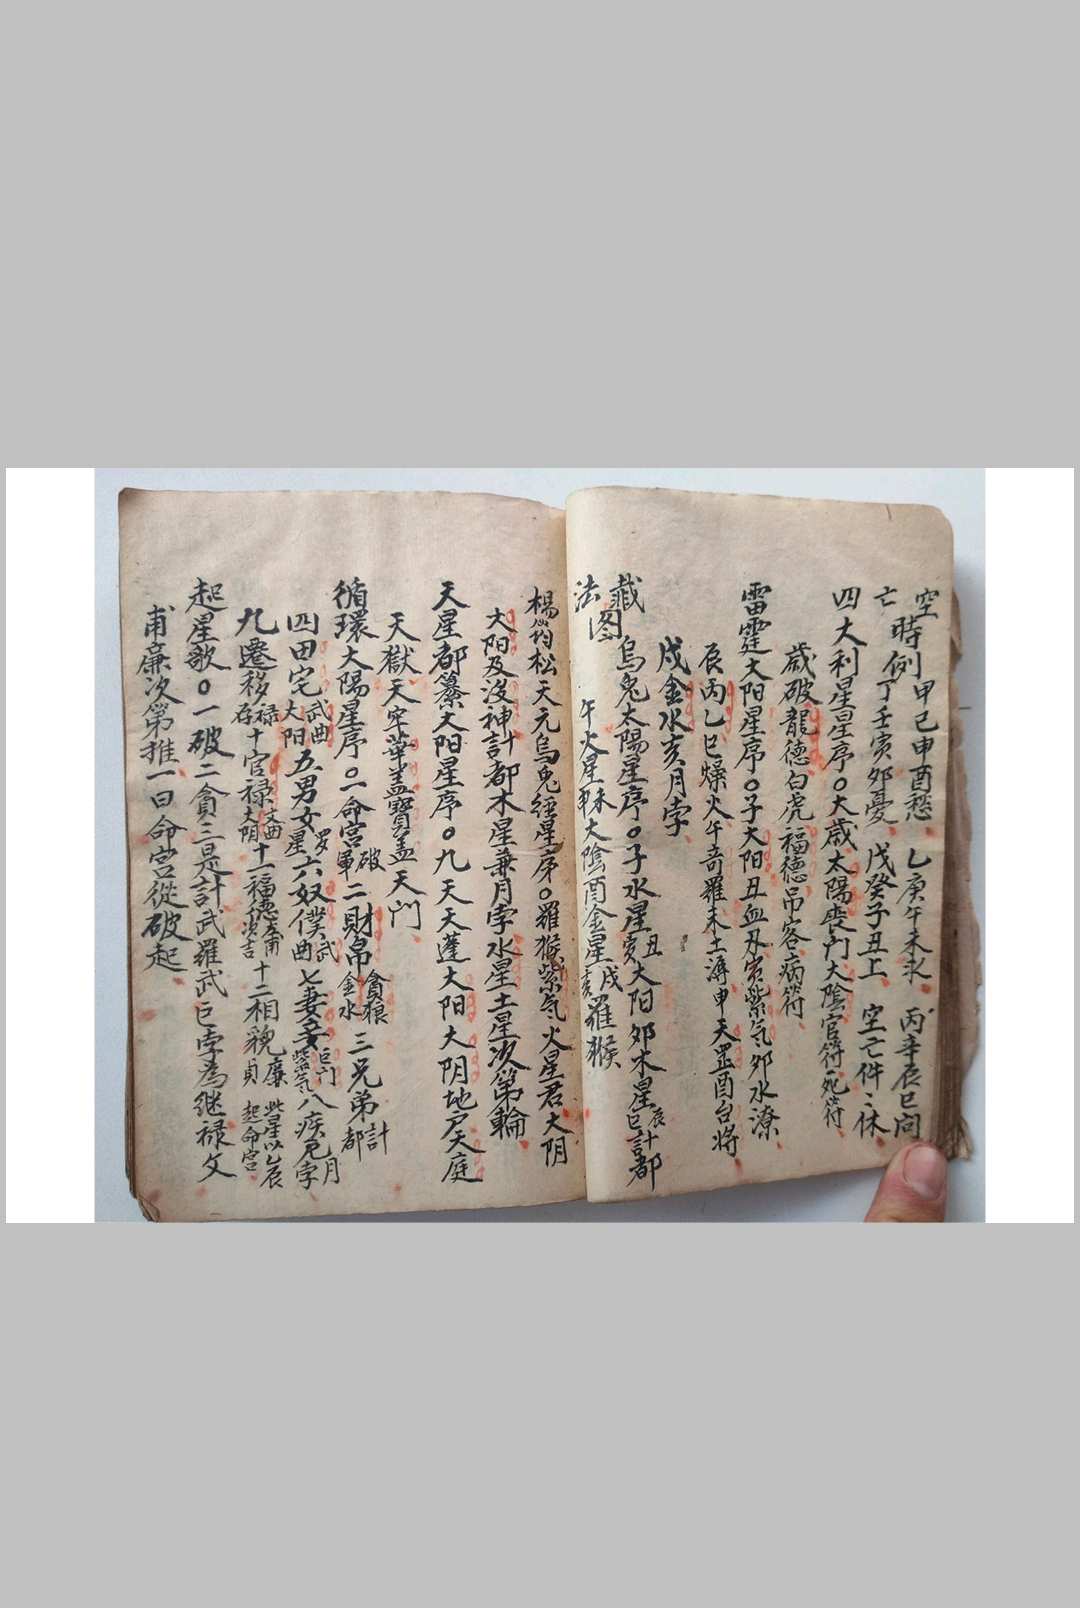 空亡時例 甲己申酉愁 乙庚午未求 丙辛辰巳問
丁壬寅卯憂 戊癸子丑上 空亡件〻休
四大利星星序〇大歲太陽喪門大陰官符死符
歲破龍德白虎福德吊客病符
雷霆大阳星序〇子大阳丑血刃寅紫气卯水潦
辰丙乙巳燥火午奇羅未土溽申天罡酉台将
戌金水亥月孛
藏法图 烏兔太陽星序〇子水星丑寅大阳卯木星辰巳計都
午火星未大陰酉金星戌亥羅猴
楊筠松天元烏兔經星序〇羅猴紫气火星君大阴
大阳及沒神計都木星兼月孛水星土星次第輪
天星都纂大阳星序〇九天天蓬大阳大阴地户天庭
天獄天牢華盖寶盖天门
循環大陽星序〇一命宫破軍二財帛貪狼金水三兄弟計都
四田宅武曲大阳五男女罗星六奴僕武曲七妻妾巨门紫气八疾厄月孛
九遷移禄存十官禄文曲大阴十一福德左甫次吉十二相貌廉貞 此星以乙辰起命宫
起星歌〇一破二貪三是計武羅武巨孛為继禄文
甫廉次第推一曰命宫從破起